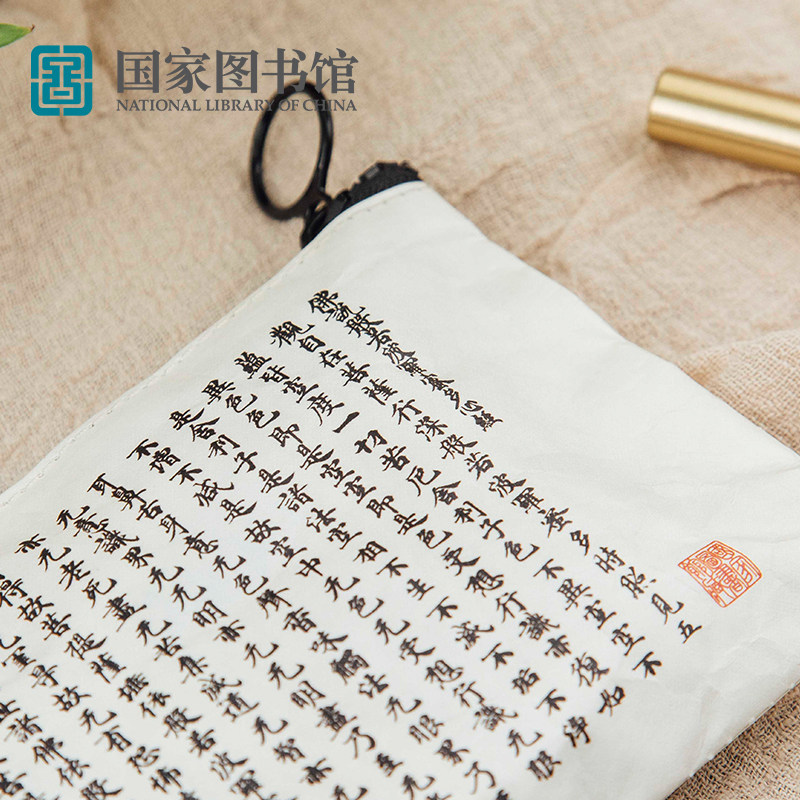 国家图书馆
NATIONAL LIBRARY OF CHINA
佛說般若波羅蜜多心經
觀自在菩薩行深般若波羅蜜多時照見五
蘊皆空度一切苦厄舍利子色不異空空不
異色色即是空空即是色受想行識亦復如
是舍利子是諸法空相不生不滅不垢不淨
不增不減是故空中无色无受想行識无眼
耳鼻舌身意无色聲香味觸法无眼界乃
无意識界无无明亦无无明盡乃至无
亦无老死盡无苦集滅道无智亦
得故菩提薩埵依般若波
罣导故无有恐怖
諸佛依般